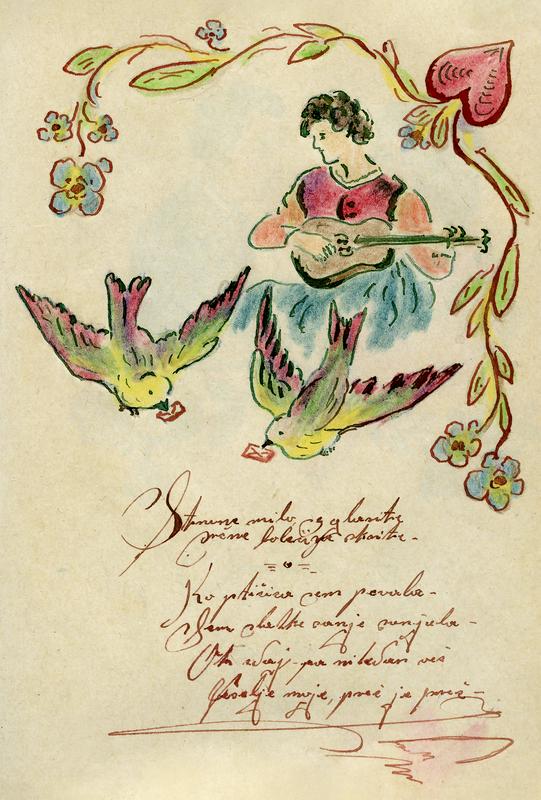 Strune milo
skrite.
Ko ptičica sem pevala -
Sem sladke sanje sanjala -
Oh zdaj pa nikdar več
Veselje moje, preč je preč -